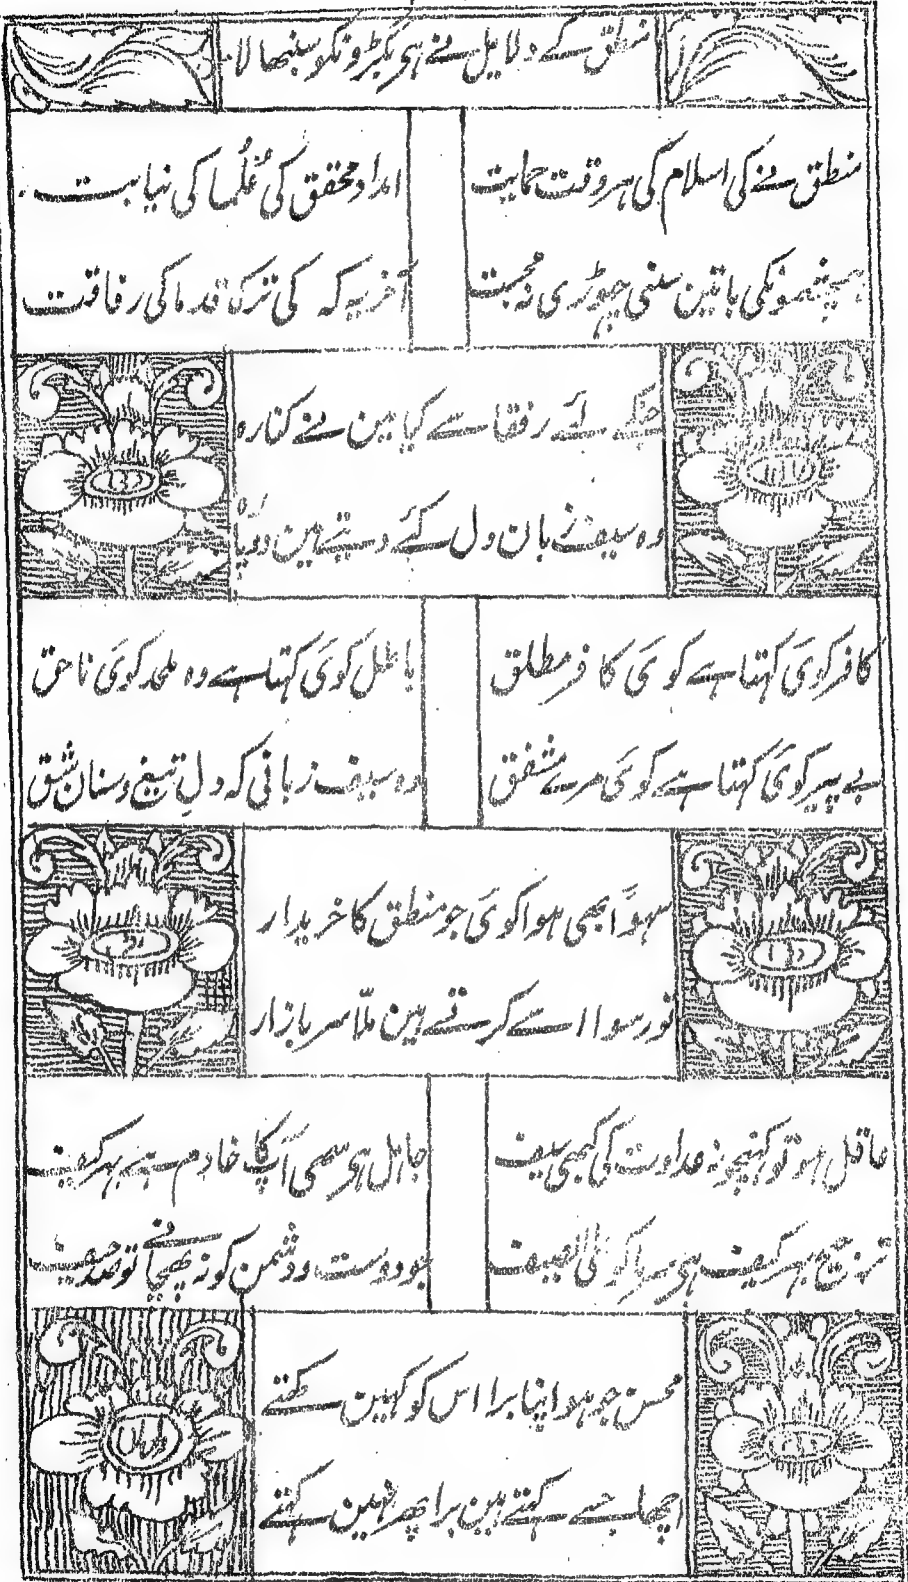 منطق کے دلایل نے ہی بگڑونکو سنبھالا
منطق نے کی اسلام کی ہر وقت حمایت
امداد محقق کی عُلَما کی نیابت
ہمچشمونکی باتین سنی چھوڑی نہ محبت
آخر یہ کہ کی ترک قدما کی رفاقت
جنکے لئے رفقا سے کیا مین نے کنارہ
وہ سیف زبان دل کئے دیتے ہین دوپارہ
کافر کوئی کہتا ہے کوئی کافر مطلق
باطل کوئی کہتا ہے وہ ملحد کوئی ناحق
بے پیر کوئی کہتا ہے کوئی مرے مشفق
وہ سیف زبانی کہ دلِ تیغ و سنان شق
سہواً بھی ہوا کوئی جو منطق کا خریدار
رسوا اسے کرتے ہین ملّا سر بازار
عاقل ہو تو کھینچو نہ عداوت کی کبھی سیف
جاہل ہی سہی آپکا خادم ہے بہر کیف
بہر کیف ہی
جو دوست و دشمن کو نہ پہچانے تو صد حیف
محسن جو ہو اپنا برا اس کو نہین کہتے
اچھا جسے کہتے ہین برا پھر نہین کہتے